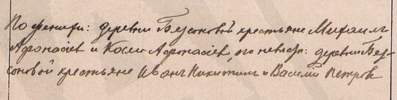 По жениху: деревни Безсоновъ крестьяне Михаилъ
Афонасіев и Косма Афонасіев, по невѣсте: деревни Без-
соновой крестьяне Иванъ Никитинъ и Василій Петров